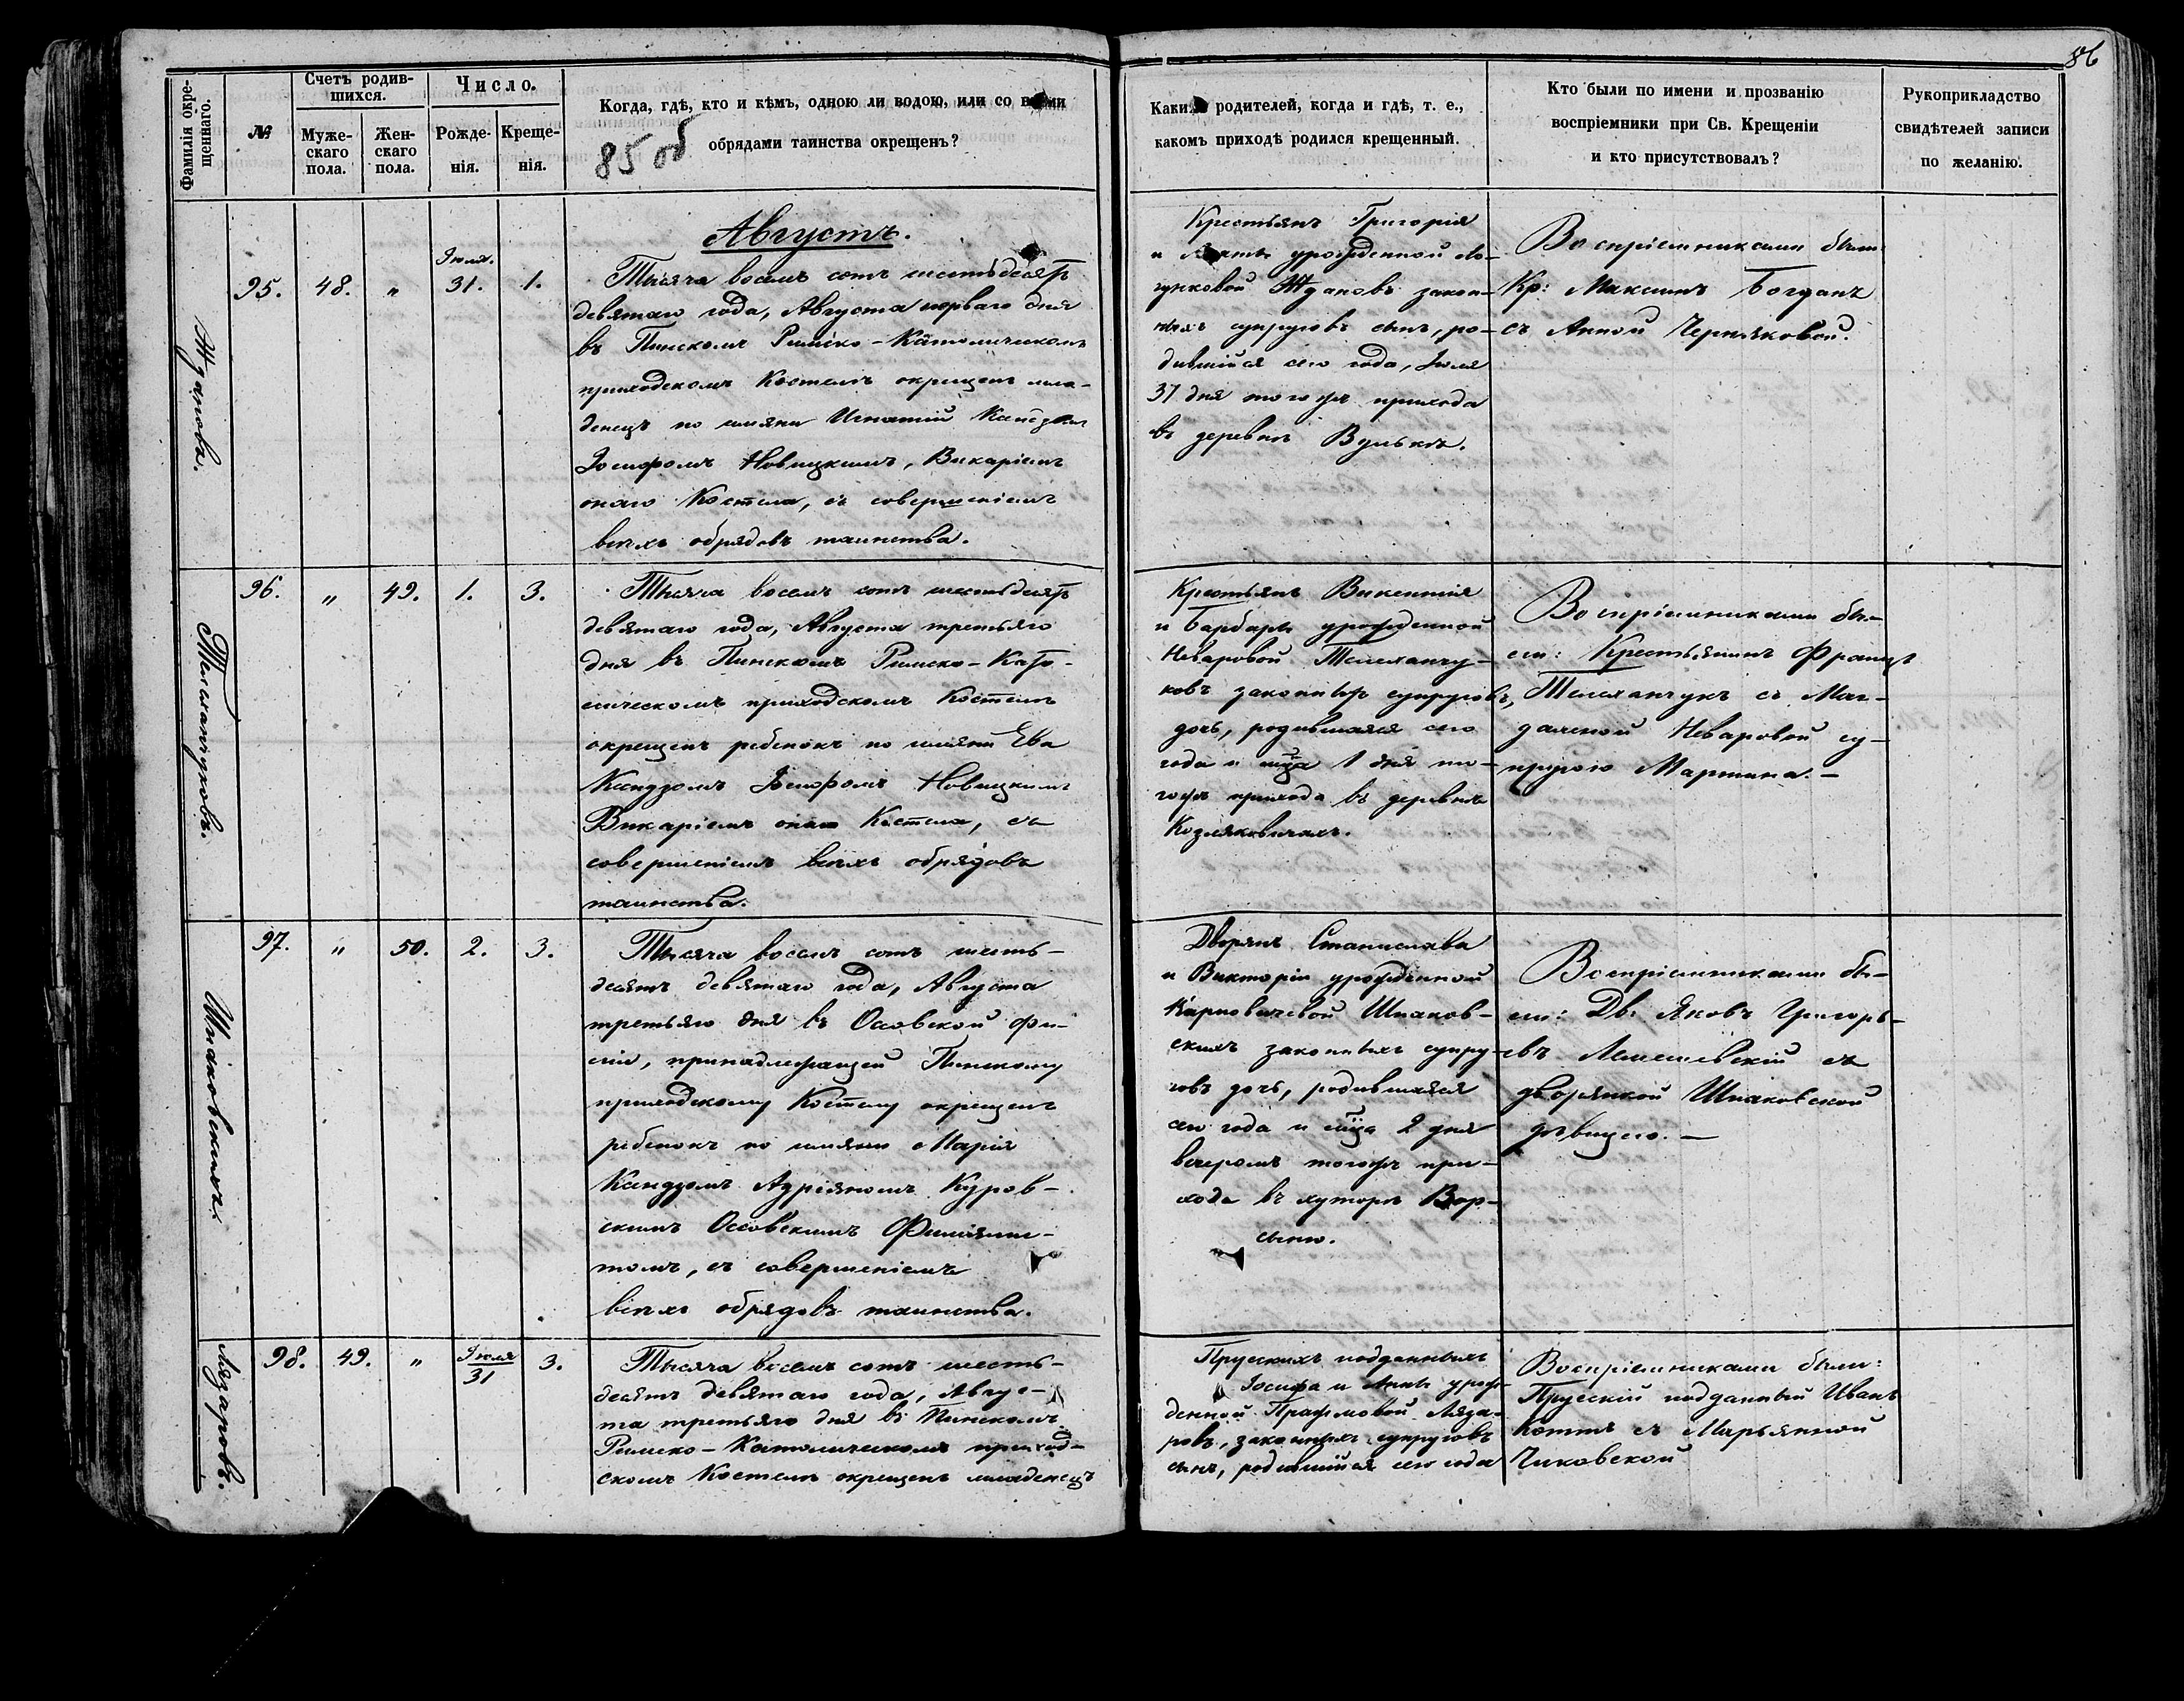 86
Фамилія окре-
щеннаго.
№
Счетъ родив-
шихся.
Муже-
скаго
пола.
Жен-
скаго
пола.
Число.
Рожде-
нія.
Креще-
нія.
Когда, гдѣ, кто и кѣмъ, одною ли водою, или со всѣми
обрядами таинства окрещенъ?
85 об
Какихъ родителей, когда и гдѣ, т. е.,
какомъ приходѣ родился крещенный.
Кто были по имени и прозванію
воспріемники при Св. Крещеніи
и кто присутствовалъ?
Рукоприкладство
свидѣтелей записи
по желанію.
Августъ.
Жданова.
95.
48.
"
Іюля.
31.
1.
Тысяча восемь сотъ шестьдесятъ
девятаго года, Августа перваго дня
въ Пинскомъ Римско-Католическомъ
приходскомъ Костелѣ окрещенъ мла-
денецъ по имяни Игнатій Ксендзомъ
Іосифомъ Новицкимъ, Викаріемъ
онаго Костела, съ совершеніемъ
всѣхъ обрядовъ таинства.
Крестьянъ Григорія
и урожденной
Ждановъ закон-
ныхъ супруговъ сынъ, ро-
дившійся сего года, Іюля
31 дня тогожъ прихода
въ деревнѣ Вулькѣ.
Воспріемниками были:
Кр: Максимъ Богданъ
съ Анной Черняковой.
Телеханчуковъ.
96.
"
49.
1.
3.
Тысяча восемь сотъ шестьдесятъ
девятаго года, Августа третьяго
дня въ Пинскомъ Римско-Като-
лическомъ приходскомъ Костелѣ
окрещенъ ребенокъ по имяни Ева
Ксендзомъ Іосифомъ Новицкимъ
Викаріемъ онаго Костела, съ
совершеніемъ всѣхъ обрядовъ
таинства.
Крестьянъ Викентія
и Барбары урожденной
Неваровой Телеханчу-
ковъ законныхъ супруговъ,
дочь, родившаяся сего
года и мца 1 дня то-
гожъ прихода въ деревнѣ
Козляковичахъ.
Воспріемниками бы-
ли: Крестьянинъ Францъ
Телеханчукъ съ Маг-
даленой Неваровой су-
пругою Мартина.-
Шпаковскихъ.
97.
"
50.
2.
3.
Тысяча восемь сотъ шесть-
десятъ девятаго года, Августа
третьяго дня въ Осовской фи-
ліи, принадлежащей Пинскому
приходскому Костелу окрещенъ
ребенокъ по имяни Марія
Ксендзомъ Адріяномъ Куров-
скимъ Осовскимъ Филіяли-
томъ, съ совершеніемъ
всѣхъ обрядовъ таинства.
Дворянъ Станислава
и Викторіи урожденной
Карповичевой Шпаков-
скихъ законныхъ супру-
говъ дочь, родившаяся
сего года и мца 2 дня
вечеромъ тогожъ при-
хода въ хуторѣ Вор-
сыно.
Воспріемниками бы-
ли: Дв. Яковъ Григорь-
евъ съ
дворянкой Шпаковской
дѣвицею.-
Лязаровъ.
98.
49.
"
Іюля
31
3.
Тысяча восемь сотъ шесть-
десятъ девятаго года, Авгус-
та третьяго дня въ Пинскомъ
Римско-Католическомъ приход-
скомъ Костелѣ окрещенъ младенецъ
Прускихъ подданныхъ
Іосифа и Анны урож-
денной Ляза-
ровъ, законныхъ супруговъ
сынъ, родившійся сего года
Воспріемниками были:
Прускій подданный Иванъ
съ Марьянной
Чиковской